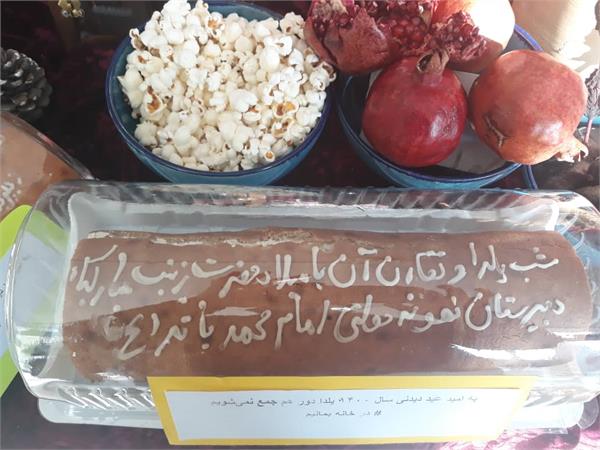 شب یلدا و تقارن آن با میلاد حضرت زینب مبارک
دبیرستان نمونه دولتی امام محمد باقر
به امید عید دیدنی سال ۱۴۰۰، یلدا دور هم جمع نمی‌شویم
# در خانه بمانیم